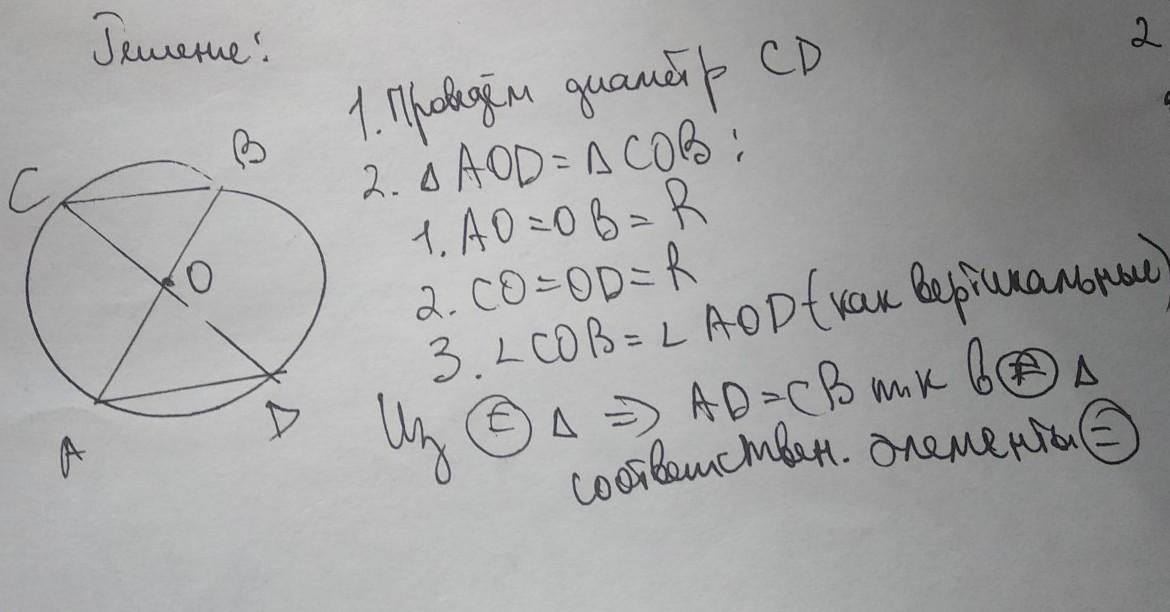 Решение:
2
1. Проведём диаметр CD
2. Δ AOD = Δ COB :
1. AO = OB = R
2. CO = OD = R
3. ∠ COB = ∠ AOD (как вертикальные)
Из = Δ ⇒ AD = CB т к в = Δ
соответствен. элементы =
C
B
O
A
D